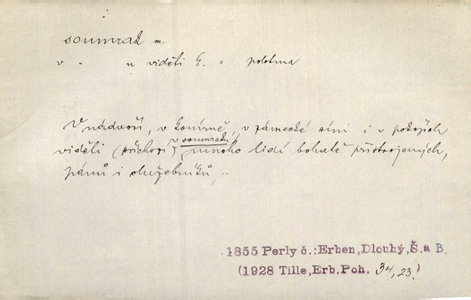 soumrak m.
v - u viděti E. = polotma
V nádvoří, v konírně, v zámecké síni i v pokojích
viděli (příchozí) v soumraku mnoho lidí bohatě přistrojených,
pánů i služebníků,..
1855 Perly č.: Erben, Dlouhý, Š. a B.
(1928 Tille, Erb. Poh. 34,23.)